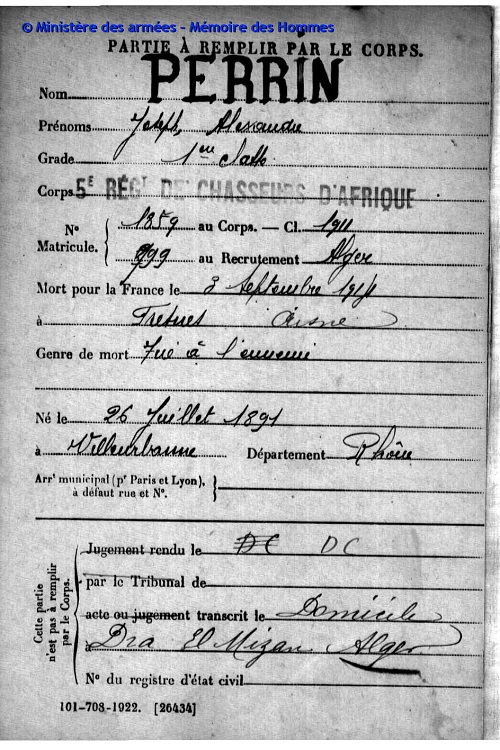 © Ministère des armées - Mémoire des Hommes
PARTIE À REMPLIR PAR LE CORPS.
Nom PERRIN
Prénoms Joseph, Alexandre
Grade 1ère classe
Corps 5E RÉGT DE CHASSEURS D'AFRIQUE
N° Matricule. { 1859 au Corps. — Cl. 1911
999 au Recrutement Alger
Mort pour la France le 3 Septembre 1914
à Aisne
Genre de mort Tué à l'ennemi
Né le 26 Juillet 1891
à Villeurbanne Département Rhône
Arrt municipal (pr Paris et Lyon),
à défaut rue et N°. }
Cette partie n'est pas à remplir par le Corps.
Jugement rendu le DC DC
par le Tribunal de
acte ou jugement transcrit le Domicile
à Dra El Mizan Alger
N° du registre d'état civil
101-708-1922. [26434]